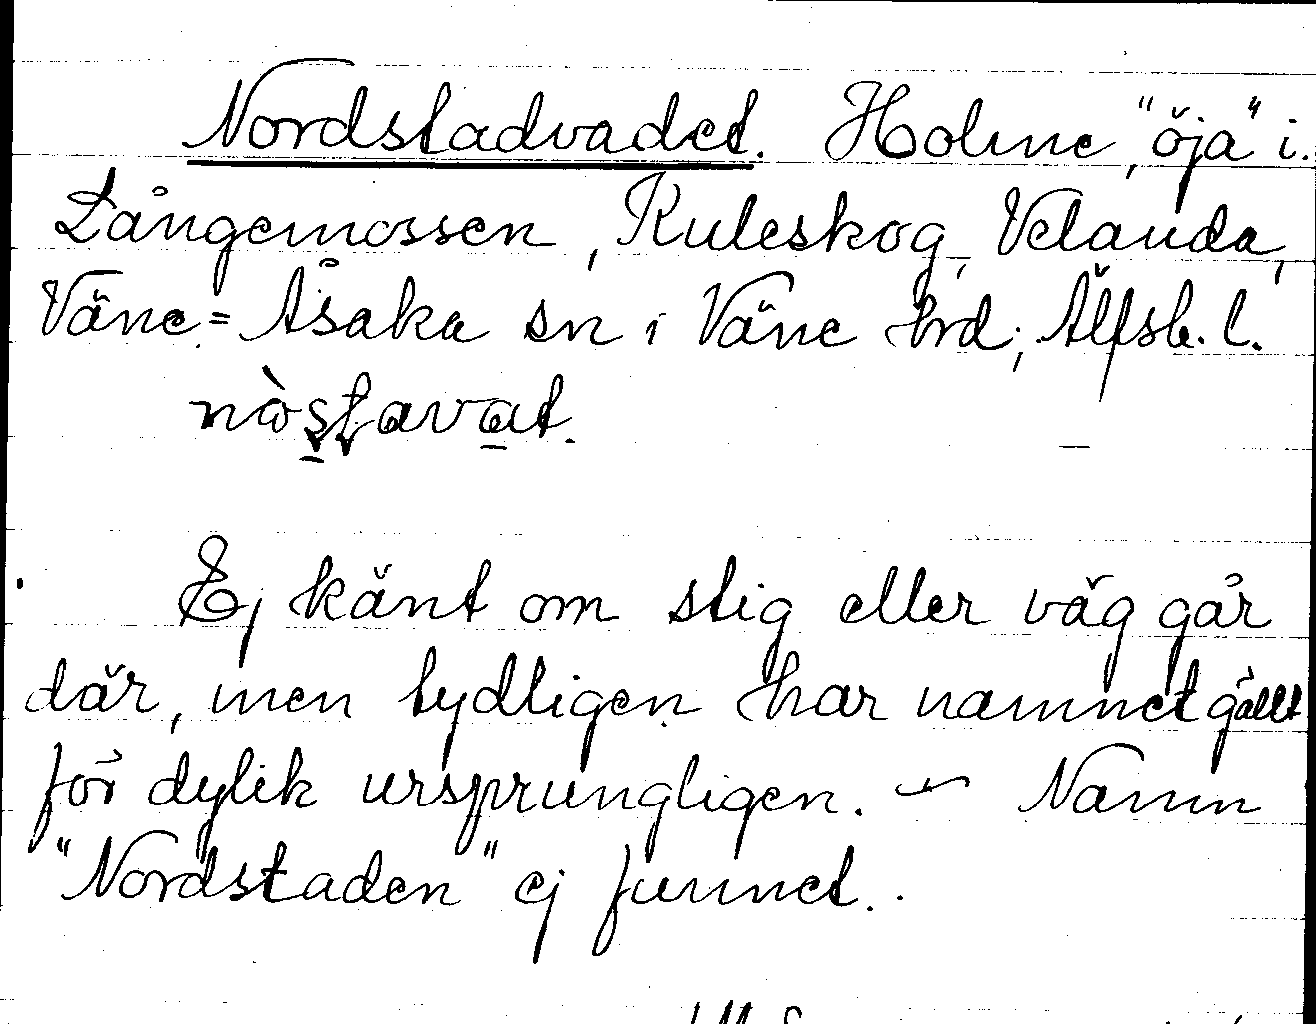 Nordstadvadet. Holme, "öja" i.
Långemossen, Kuleskog, Velanda,
Väne-Åsaka sn i Väne hrd; Älfsb. l.
nòstavat.
Ej känt om stig eller väg går
där, men tydligen har namnet gällt
för dylik ursprungligen. – Namn
"Nordstaden" ej funnet.